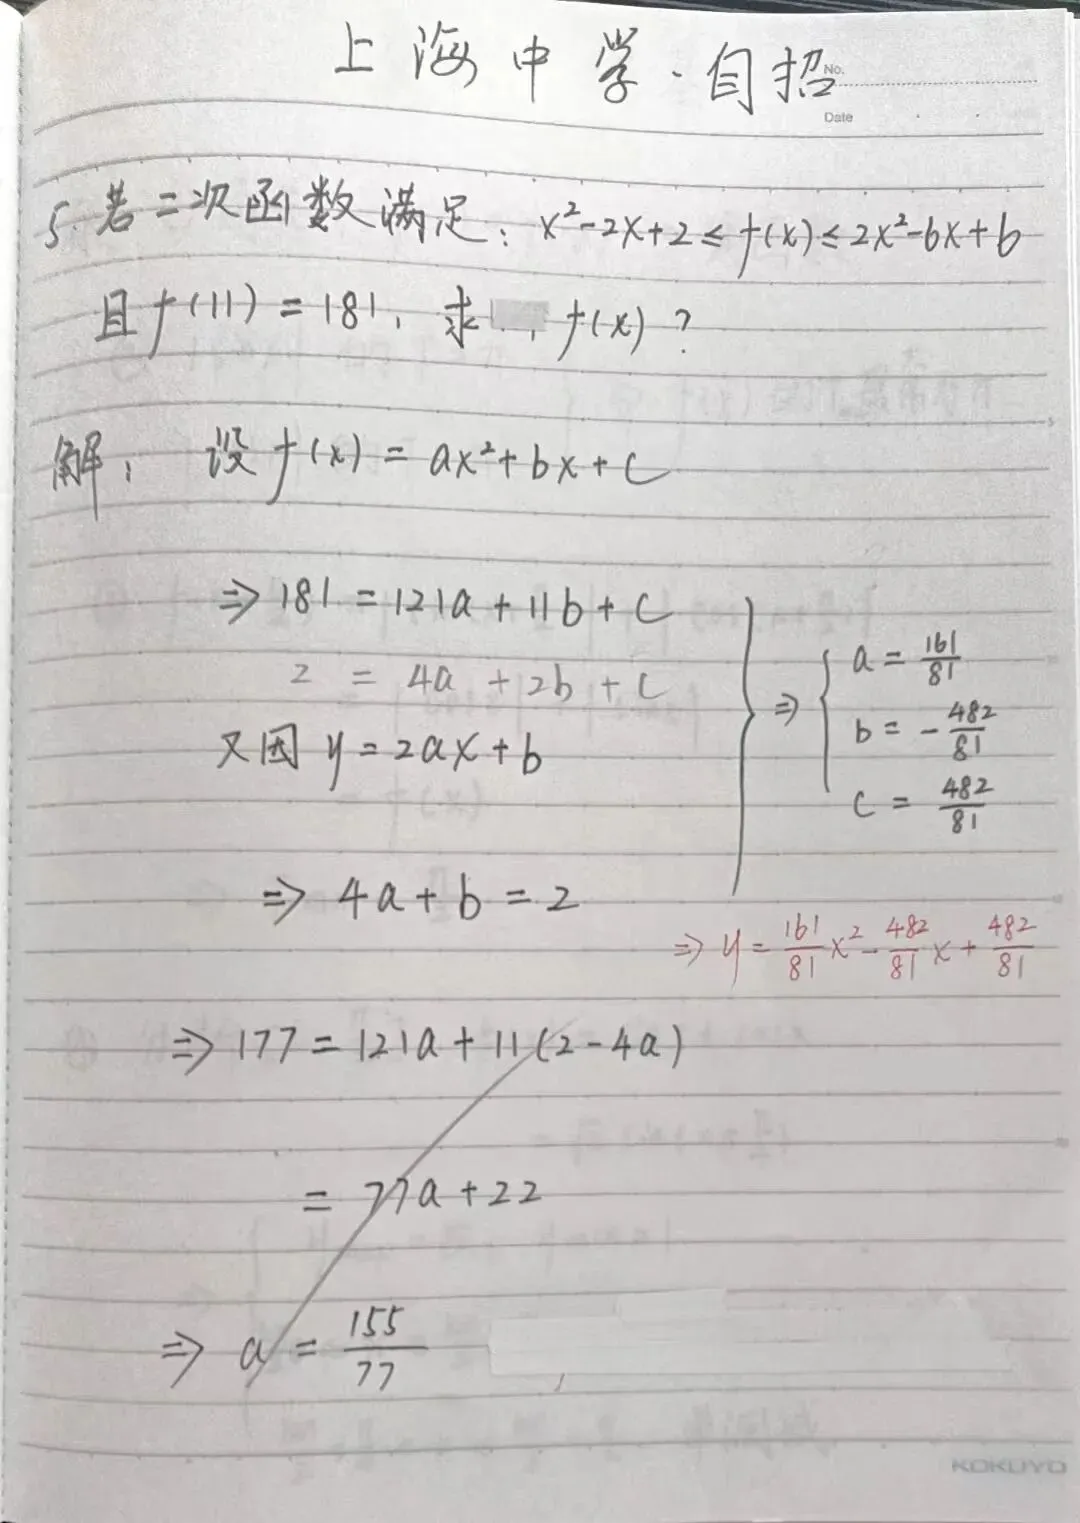 上海中学·自招
No.
Date
5. 若二次函数满足: x²-2x+2≤f(x)≤2x²-6x+6
且f(11)=181, 求 f(x)?
解: 设f(x)=ax²+bx+c
⇒181=121a+11b+c
2=4a+2b+c
又因y=2ax+b
⇒4a+b=2
⇒ a=161/81
b=-482/81
c=482/81
⇒y=161/81x²-482/81x+482/81
⇒177=121a+11(2-4a)
=77a+22
⇒a=155/77
KOKUYO